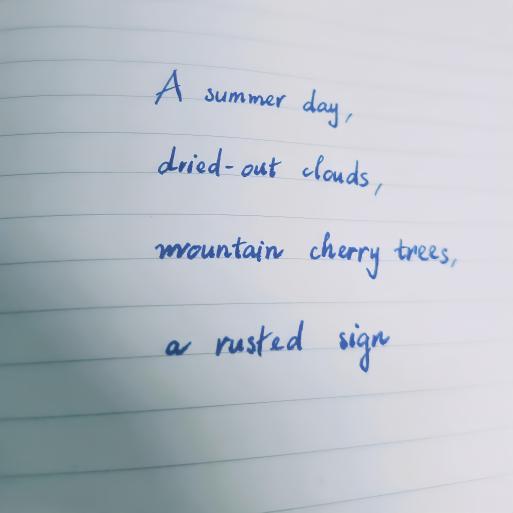 A summer day,
dried-out clouds,
mountain cherry trees,
a rusted sign